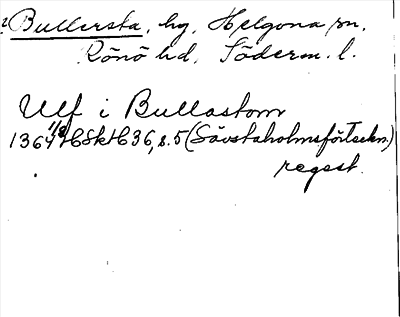 2 Bullersta, hg, Helgona sn.
Rönö hd, Söderm. l.
Ulf i Bullastom
1364 1/8 HSkH 36, s. 5 (Sävstaholmsförteckn.)
regest.